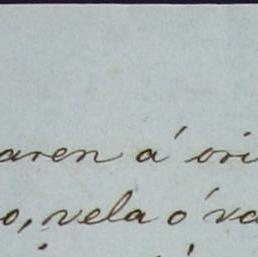 aren á ori
o, vela ó va